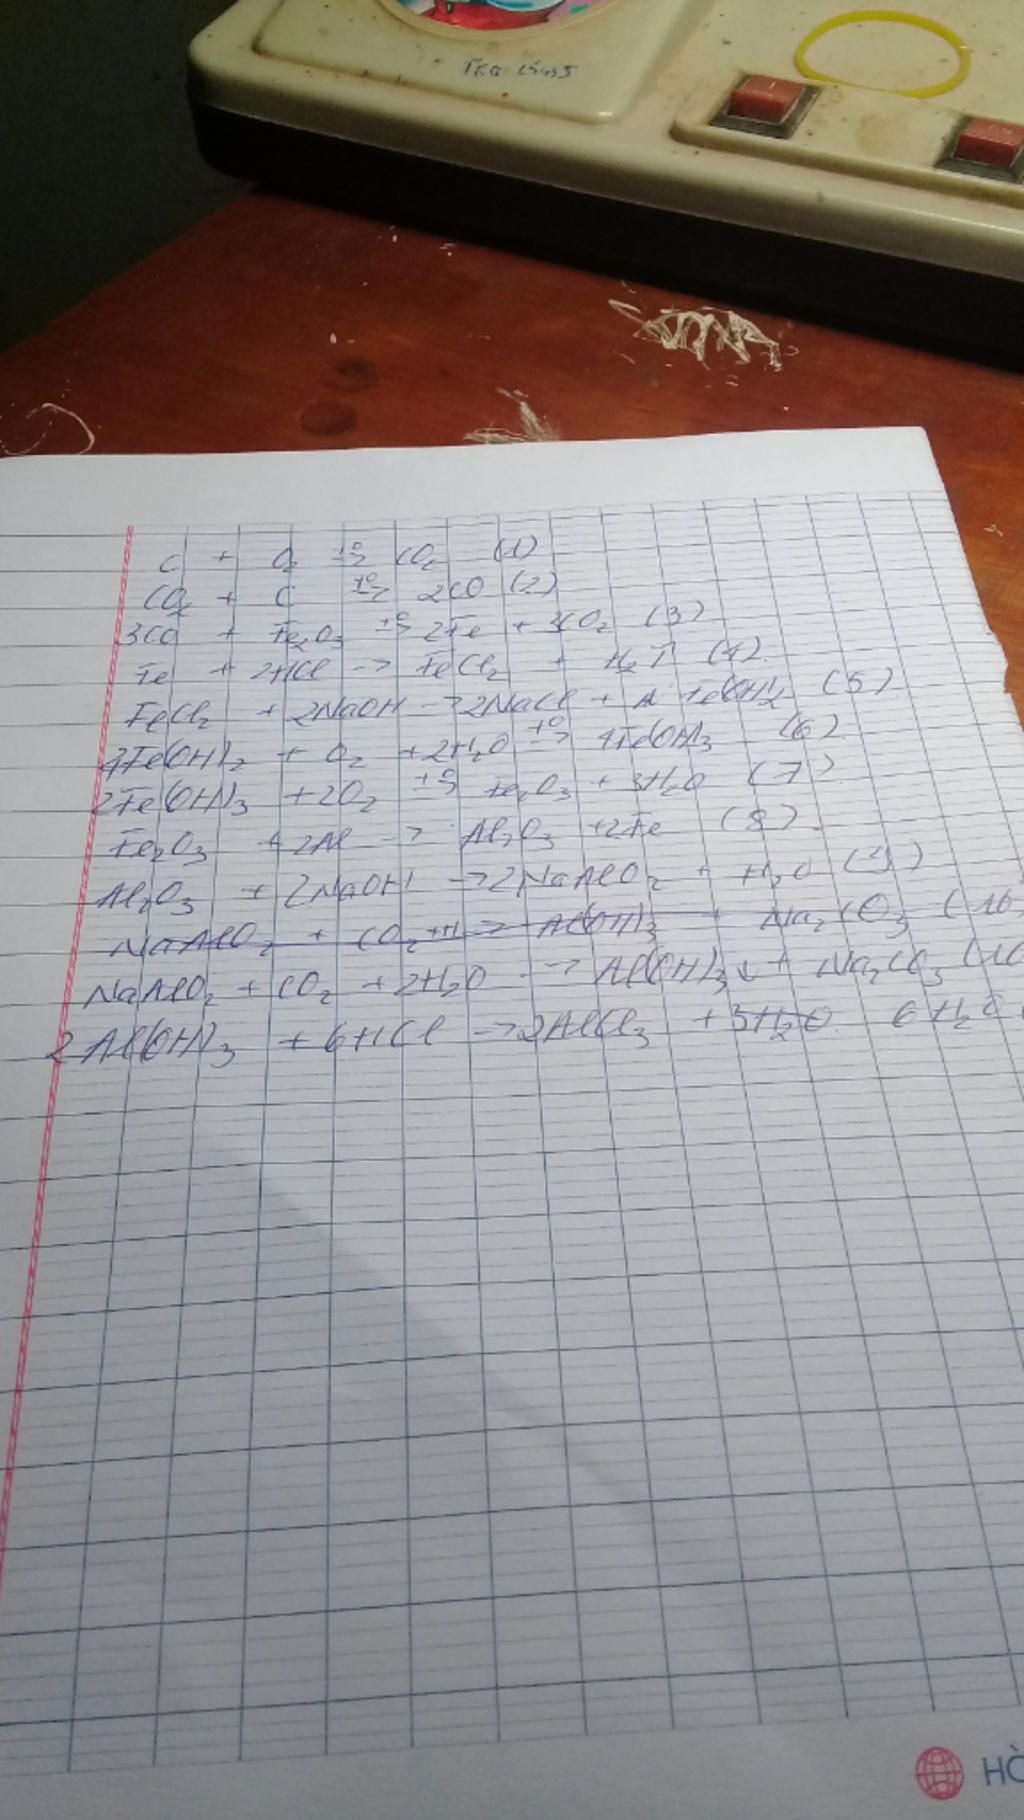 C + O2 t°→ CO2 (1)
CO2 + C t°→ 2CO (2)
3CO + Fe2O3 t°→ 2Fe + 3CO2 (3)
Fe + 2HCl -> FeCl2 + H2↑ (4)
FeCl2 + 2NaOH -> 2NaCl + Fe(OH)2 (5)
4Fe(OH)2 + O2 + 2H2O t°→ 4Fe(OH)3 (6)
2Fe(OH)3 + 2O2 t°→ Fe2O3 + 3H2O (7)
Fe2O3 + 2Al -> Al2O3 + 2Fe (8)
Al2O3 + 2NaOH -> 2NaAlO2 + H2O (9)
NaAlO2 + CO2 + H -> Al(OH)3 + Na2CO3 (10
NaAlO2 + CO2 + 2H2O -> Al(OH)3↓ + Na2CO3 (10
2Al(OH)3 + 6HCl -> 2AlCl3 + 3H2O 6H2O (
HÒ